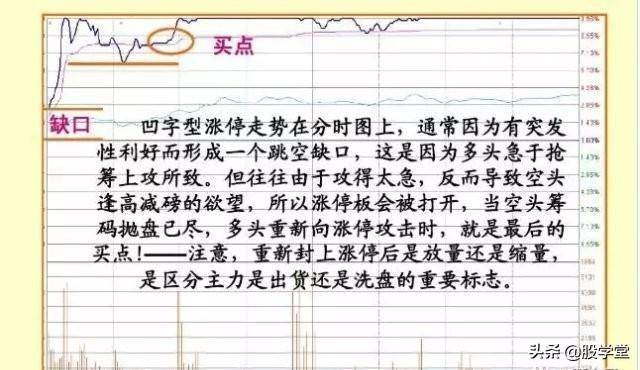 买点
缺口
凹字型涨停走势在分时图上，通常因为有突发
性利好而形成一个跳空缺口，这是因为多头急于抢
筹上攻所致。但往往由于攻得太急，反而导致空头
逢高减磅的欲望，所以涨停板会被打开，当空头筹
码抛盘已尽，多头重新向涨停攻击时，就是最后的
买点!——注意，重新封上涨停后是放量还是缩量，
是区分主力是出货还是洗盘的重要标志。
头条 @股学堂